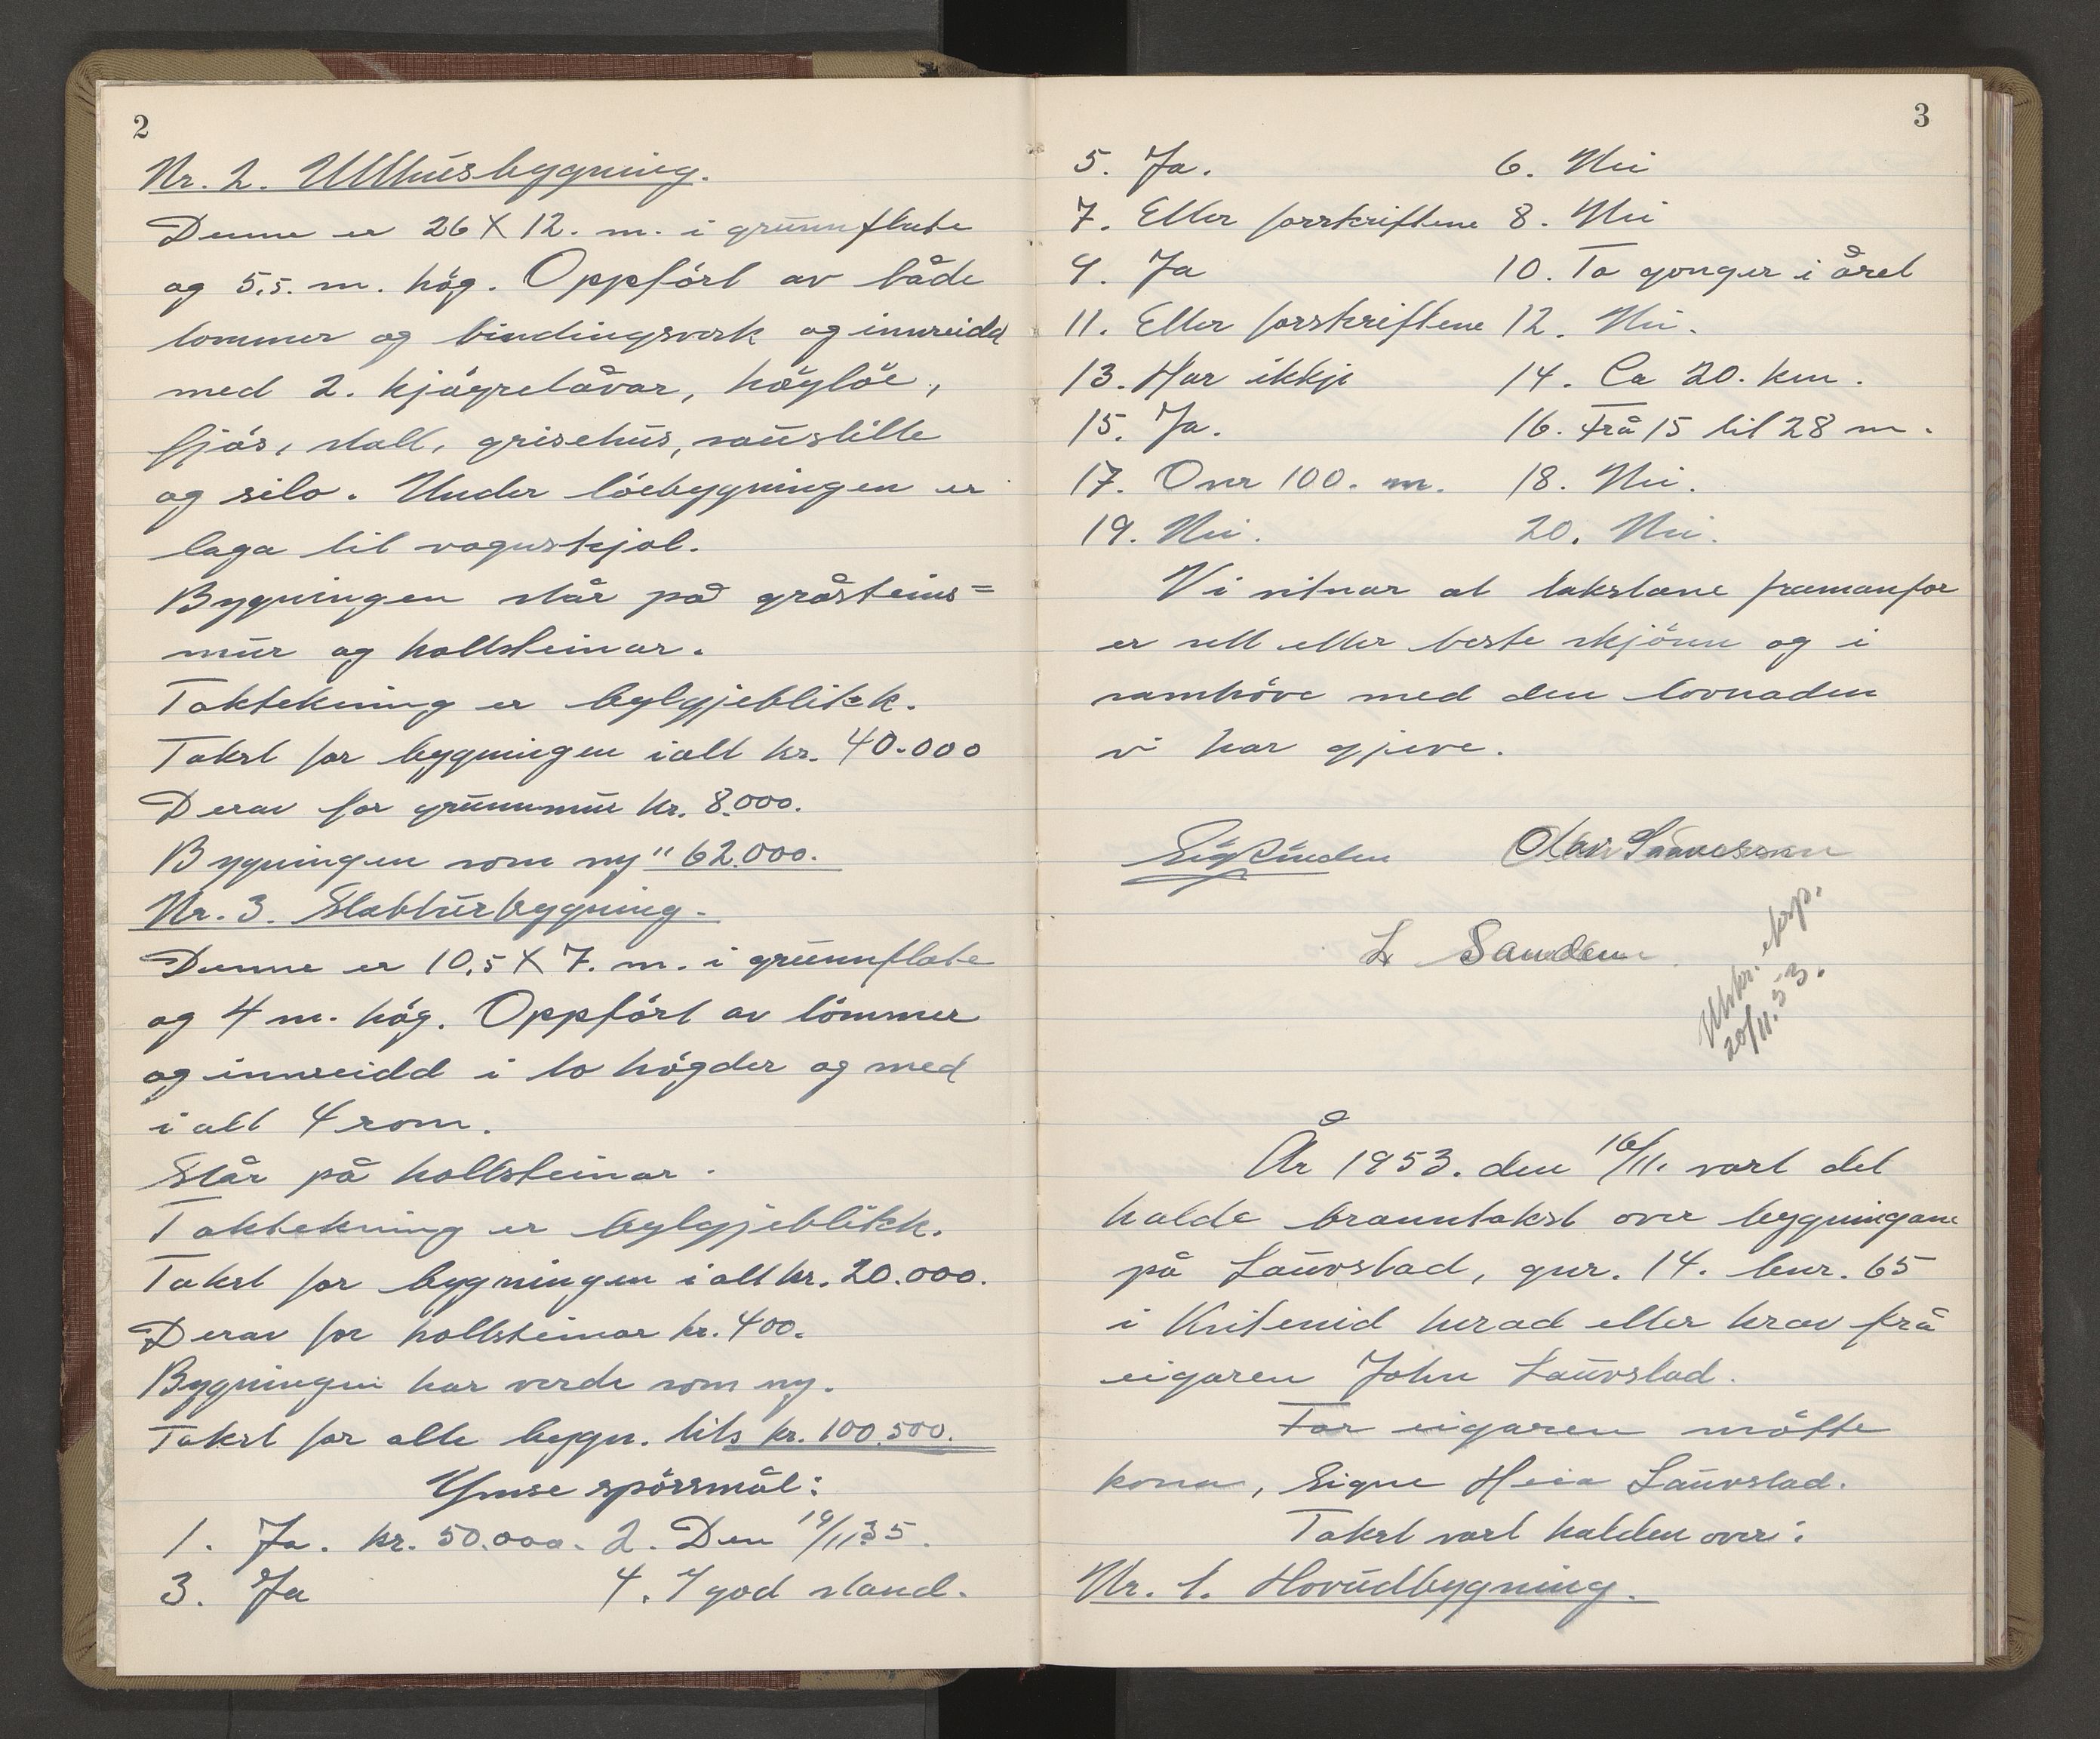 2
Nr. 2. Uthusbygning.
Denne er 26 X 12. m. i grunnflate
og 5,5. m. høg. Oppført av både
tømmer og bindingsverk og innreidd
med 2. kjøgrelåvar, høyløe,
fjøs, stall, grisehus, saustille
og silo. Under løebygningen er
laga til vognskjol.
Bygningen står på gråsteins=
mur og hollsteinar.
Taktekning er bylgjeblikk.
Takst for bygningen ialt kr. 40.000
Derav for grunnmur kr. 8.000.
Bygningen som ny " 62.000.
Nr. 3. Stabbursbygning.
Denne er 10,5 X 7. m. i grunnflate
og 4 m. høg. Oppført av tømmer
og innreidd i to høgder og med
i alt 4 rom.
Står på hollsteinar.
Taktekning er bylgjeblikk.
Takst for bygningen i alt kr. 20.000.
Derav for hollsteinar kr. 400.
Bygningen har verde som ny.
Takst for alle bygn. tils kr. 100.500.
Ymse spørsmål:
1. Ja. kr. 50.000. 2. Den 19/11 35.
3. Ja 4. I god stand.
3
5. Ja. 6. Nei
7. Etter forskriftene 8. Nei
9. Ja 10. To gonger i året
11. Etter forskriftene 12. Nei.
13. Har ikkje 14. Ca 20. km.
15. Ja. 16. Frå 15 til 28 m.
17. Over 100. m. 18. Nei.
19. Nei. 20. Nei.
Vi vitnar at takstane framanfor
er sett etter beste skjønn og i
samhøve med den lovnaden
vi har gjeve.
Olav
L Sanden
Utskr. eksp.
20/11.53.
År 1953. den 16/11. vart det
halde branntakst over bygningane
på Lauvstad, gnr. 14. bnr. 65
i Kviteseid herad etter krav frå
eigaren John Lauvstad.
For eigaren møtte
kona, Signe Heia Lauvstad.
Takst vart halden over:
Nr. 1. Hovudbygning.